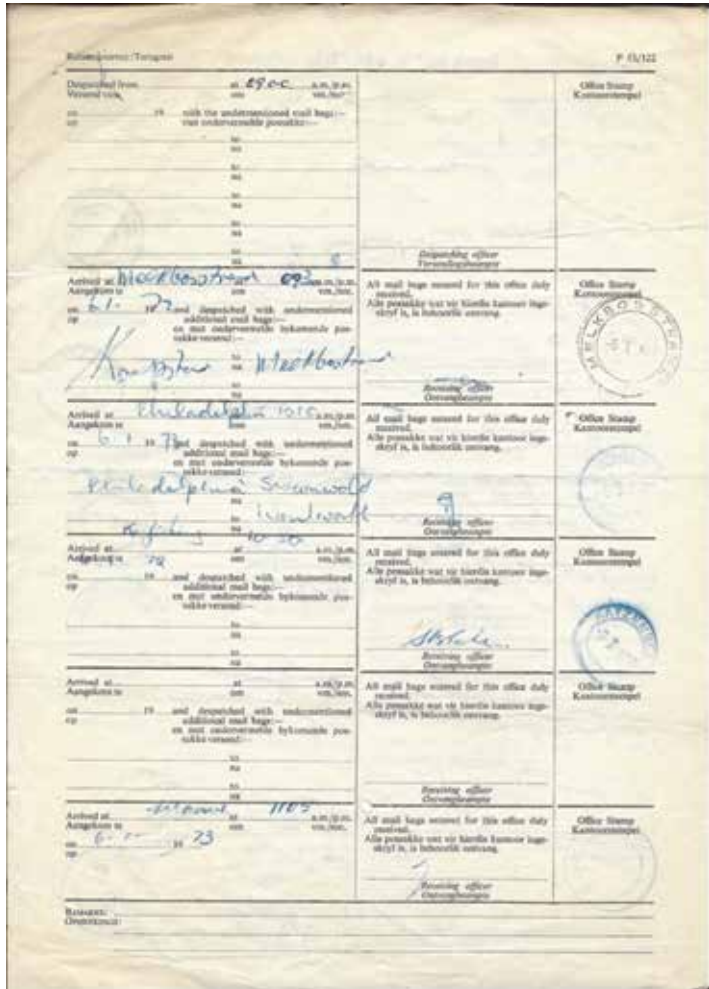 P 13/122
Despatched from at 0900 a.m./p.m.
Versend van om vm./nm.
Office Stamp
Kantoorstempel
on 19 with the undermentioned mail bags:—
op met ondervermelde possakke:—
to
na
to
na
to
na
to
na
to
na
Despatching officer
Versendingsbeampte
Arrived at Melkbosstrand at a.m./p.m.
Aangekom te om vm./nm.
on 6/1- 19 and despatched with undermentioned
op additional mail bags:—
en met ondervermelde bykomende pos-
sakke versend:—
to Melkbosstrand
na
to
na
All mail bags entered for this office duly
received.
Alle possakke wat vir hierdie kantoor inge-
skryf is, is behoorlik ontvang.
Receiving officer
Ontvangbeampte
Office Stamp
Kantoorstempel
MELKBOSSTRAND
Arrived at Philadelphia 1015 a.m./p.m.
Aangekom te om vm./nm.
on 6/1 19 73 and despatched with undermentioned
op additional mail bags:—
en met ondervermelde bykomende pos-
sakke versend:—
Philadelphia
to
na
to
na
All mail bags entered for this office duly
received.
Alle possakke wat vir hierdie kantoor inge-
skryf is, is behoorlik ontvang.
Receiving officer
Ontvangbeampte
Office Stamp
Kantoorstempel
Arrived at at a.m./p.m.
Aangekom te om vm./nm.
on 19 and despatched with undermentioned
op additional mail bags:—
en met ondervermelde bykomende pos-
sakke versend:—
to
na
to
na
All mail bags entered for this office duly
received.
Alle possakke wat vir hierdie kantoor inge-
skryf is, is behoorlik ontvang.
Receiving officer
Ontvangbeampte
Office Stamp
Kantoorstempel
Arrived at at a.m./p.m.
Aangekom te om vm./nm.
on 19 and despatched with undermentioned
op additional mail bags:—
en met ondervermelde bykomende pos-
sakke versend:—
to
na
to
na
All mail bags entered for this office duly
received.
Alle possakke wat vir hierdie kantoor inge-
skryf is, is behoorlik ontvang.
Receiving officer
Ontvangbeampte
Office Stamp
Kantoorstempel
Arrived at at 1105 a.m./p.m.
Aangekom te om vm./nm.
on 19 73
op
All mail bags entered for this office duly
received.
Alle possakke wat vir hierdie kantoor inge-
skryf is, is behoorlik ontvang.
Receiving officer
Ontvangbeampte
Office Stamp
Kantoorstempel
REMARKS:
OPMERKINGS: